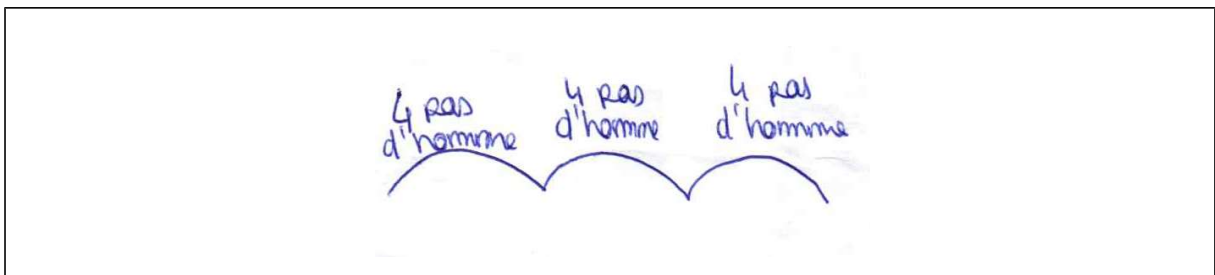 4 pas
d'homme
4 pas
d'homme
4 pas
d'homme